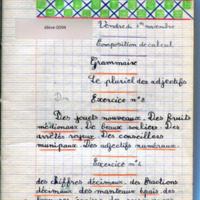 élève 0094
Vendredi 1er novembre
Composition de calcul
Grammaire
Le pluriel des adjectifs
Exercice n°2
Des jouets nouveaux. Des fruits
médionaux. De beaux souliers. Des
arrêtés royaux. Des conseillers
munipaux. Des adjectifs numéraux.
Exercice n°
des chiffres décimaux. des fractions
décimaux. des manteaux épais des